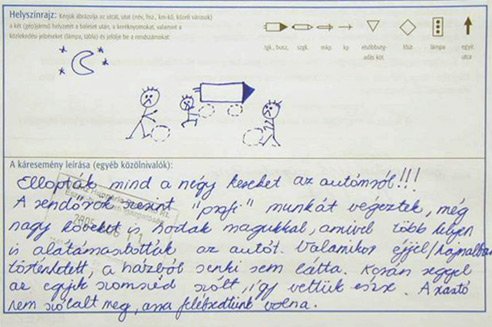 Helyszínrajz: Kérjük ábrázolja az utcát, utat (név, hsz., km-kő, közeli városok)
a két (gép)jármű helyzetét a baleset után, a keréknyomokat, valamint a
közlekedési jelzéseket (lámpa és táblák) és jelölje be a rendszámokat!
tgk., busz, szgk. mkp kp elsőbbség-adás köt. főút lámpa egyir. utca
A káresemény leírása (egyéb közölnivalók):
Ellopták mind a négy kereket az autómról!!!
A rendőrök szerint "profi" munkát végeztek, még
nagy köveket is hoztak magukkal, amivel több helyen
is alátámasztották az autót. Valamikor éjjel/hajnalban
történhetett, a házból senki sem látta. Korán reggel
az egyik szomszéd szólt, így vettük észre. A riasztó
nem szólalt meg, arra felébredtünk volna.